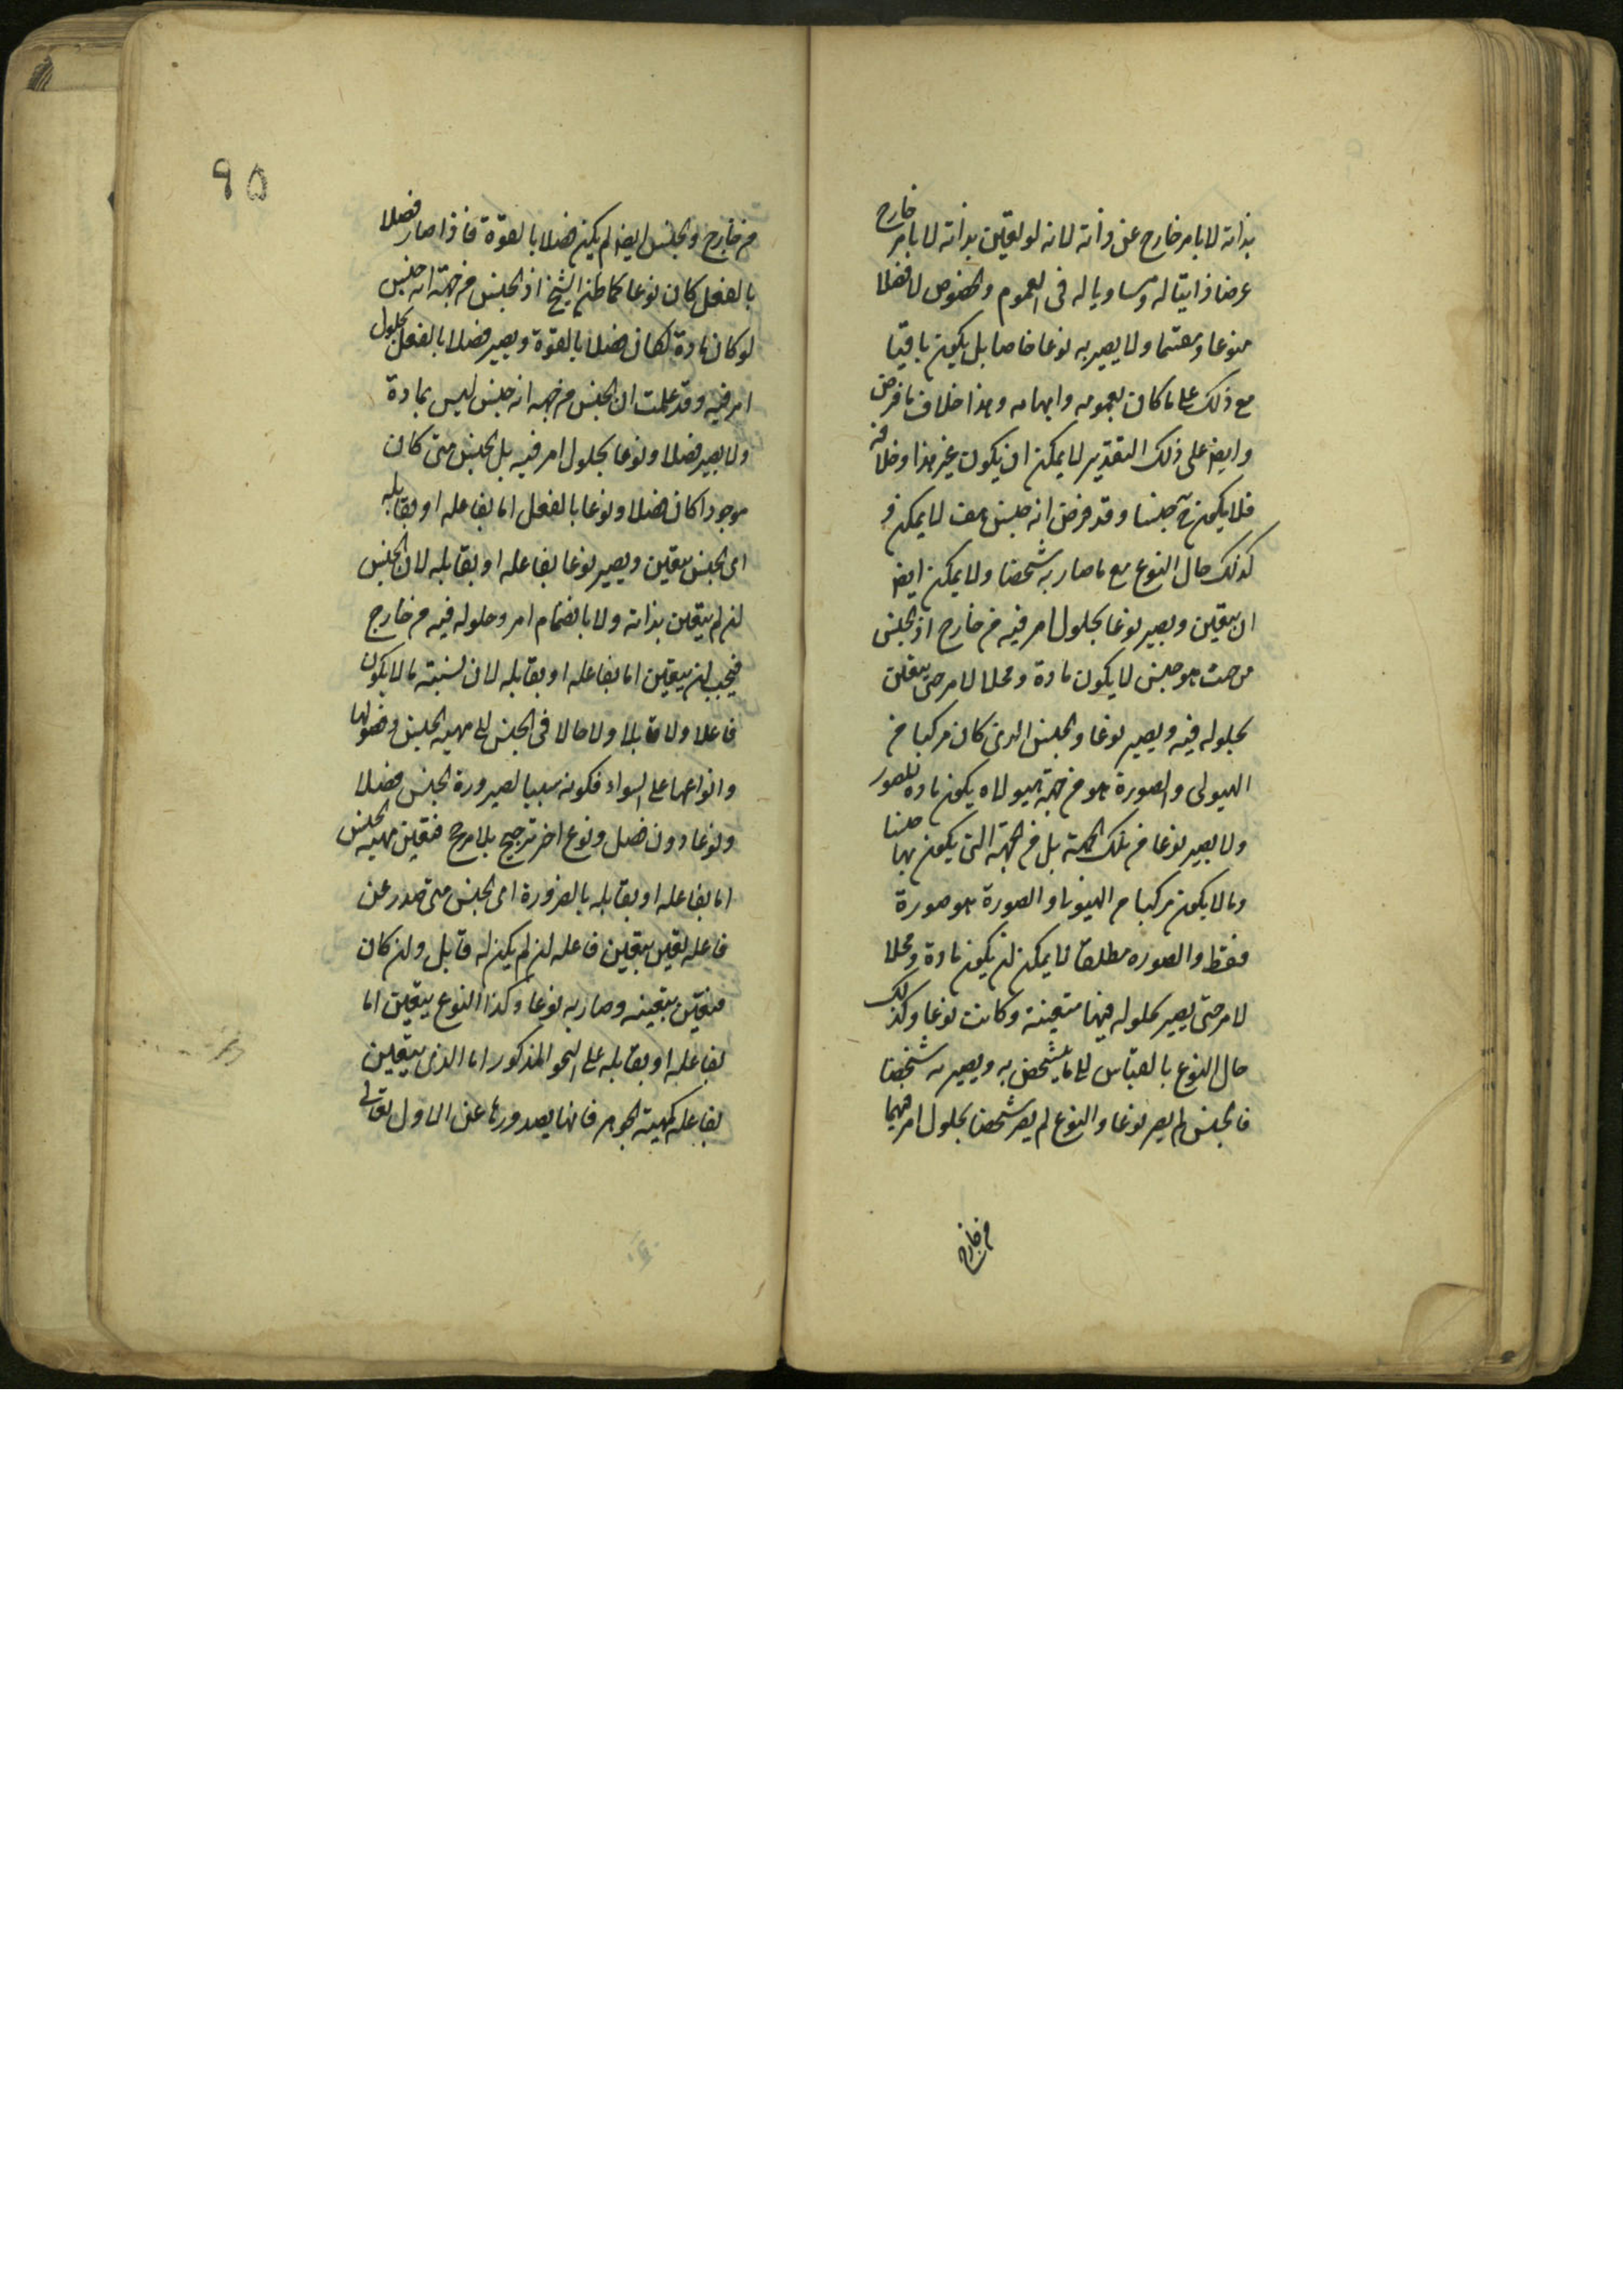 بذاته لا بامر خارج عن ذاته لانه لو تعين بذاته لا بامر خارج
عرضا ذاتيا له ومساويا له فى العموم والخصوص لا فصلا
منوعا ومقسما ولا يصير به نوعا خاصا بل يكون باقيا
مع ذلك على ما كان بعمومه وابهامه وهذا خلاف ما فرض
وايض على ذلك التقدير لا يمكن ان يكون غير هذا وخلافه
فلا يكون ح جنسا وقد فرض انه جنس هف لا يمكن
كذلك حال النوع مع ما صار به شخصا ولا يمكن ايض
ان يتعين ويصير نوعا بحلول امر فيه من خارج اذ الجنس
من حيث هو جنس لا يكون مادة ومحلا لامر حتى يتعين
بحلوله فيه ويصير نوعا والجنس الذى كان مركبا من
الهيولى والصورة هو من جهة هيولاه يكون مادة للصور
ولا يصير نوعا من تلك الجهة بل من الجهة التى يكون بها جنسا
وما لا يكون مركبا من الهيولى والصورة هو صورة
فقط والصوره مطلقا لا يمكن ان يكون مادة ومحلا
لامر حتى يصير بحلوله فيها متعينة وكانت نوعا وكذلك
حال النوع بالقياس الى ما يتشخص به ويصير به شخصا
فالجنس لم يصر نوعا والنوع لم يصر شخصا بحلول امر فيهما
من خارج
٩٥
من خارج والجنس ايض لم يكن فصلا بالقوة فاذا صار فصلا
بالفعل كان نوعا كما ظنه الشيخ اذ الجنس من جهة انه جنس
لو كان مادة لكان فصلا بالقوة ويصير فصلا بالفعل بحلول
امر فيه وقد علمت ان الجنس من جهة انه جنس ليس بمادة
ولا يصير فصلا ونوعا بحلول امر فيه بل الجنس متى كان
موجودا كان فصلا ونوعا بالفعل اما بفاعله او بقابله
اى الجنس يتعين ويصير نوعا بفاعله او بقابله لان الجنس
ان لم يتعين بذاته ولا بانضمام امر وحلوله فيه من خارج
فيجب ان يتعين اما بفاعله او بقابله لان نسبته ما لا يكون
فاعلا ولا قابلا ولا حالا فى الجنس الى مهية الجنس وفصولها
وانواعها على السواء فكونه سببا لصيرورة الجنس فصلا
ونوعا دون فصل ونوع اخر ترجيح بلا مرجح فتعين مهية الجنس
اما بفاعله او بقابله بالضرورة اى الجنس متى صدر عن
فاعله تعين بتعين فاعله ان لم يكن له قابل وان كان
فتعين بتعينه وصار به نوعا وكذا النوع يتعين اما
بفاعله او بقابله على النحو المذكور اما الذى يتعين
بفاعله كمهية الجوهر فانها بصدورها عن الاول تعالى